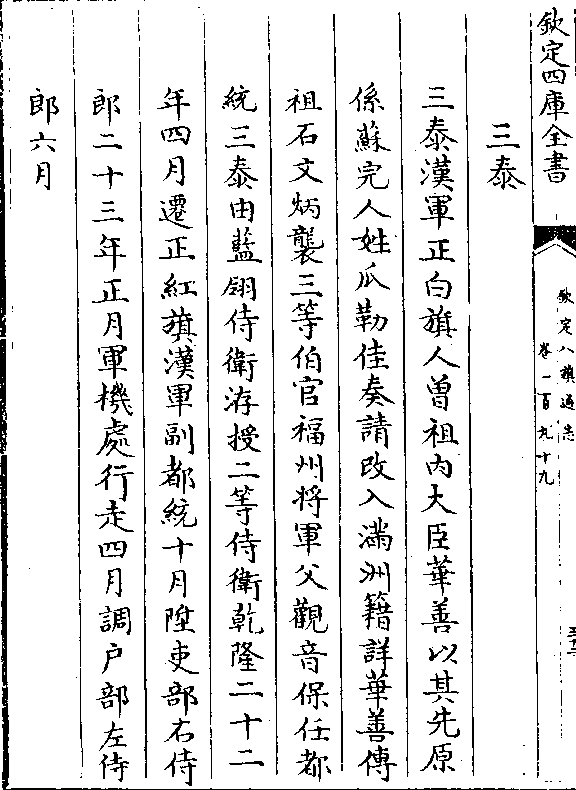 欽定四庫全書
欽定八旗通志
卷一百九十九
三泰
三泰漢軍正白旗人曽祖內大臣華善以其先原
係蘇完人姓瓜勒佳奏請改入滿洲籍詳華善傳
祖石文炳襲三等伯官福州將軍父觀音保任都
統三泰由藍翎侍衛洊授二等侍衛乾隆二十二
年四月遷正紅旗漢軍副都統十月陞吏部右侍
郎二十三年正月軍機處行走四月調户部左侍
郎六月